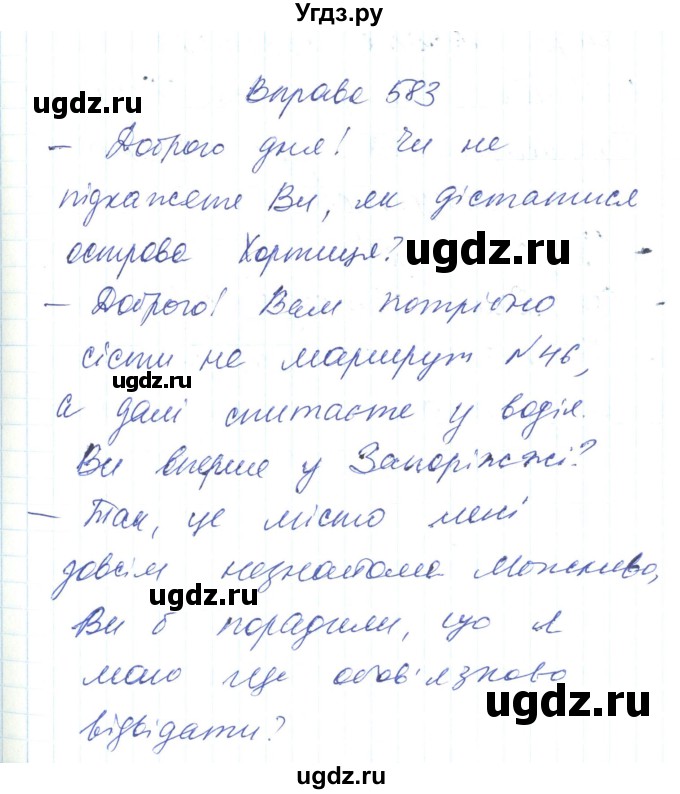 Угдз.ру
Вправа 583
ugdz.ru
– Доброго дня! Чи не
підкажете Ви, як дістатися
острова Хортиця?
ugdz.ru
– Доброго! Вам потрібно
сісти на маршрут №46,
ugdz.ru
а далі спитаєте у водія.
Ви вперше у Запоріжжі?
– Так, це місто мені
зовсім незнайоме. Можливо,
ugdz.ru
Ви б порадили, що я
маю ще обов'язково
ugdz.ru
ugdz.ru
відвідати?
ugdz.ru